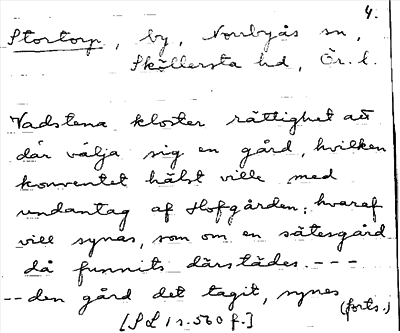 4.
Stortorp, by, Norrbyås sn,
Sköllersta hd, Ör. l.
Vadstena kloster rättighet att
där välja sig en gård, hvilken
konventet hälst ville med
undantag af Hofgården; hvaraf
vill synas, som om en sätesgård
då funnits därstädes. - - -
-- den gård det tagit, synes
(forts.)
[SL 1 s. 560 f.]